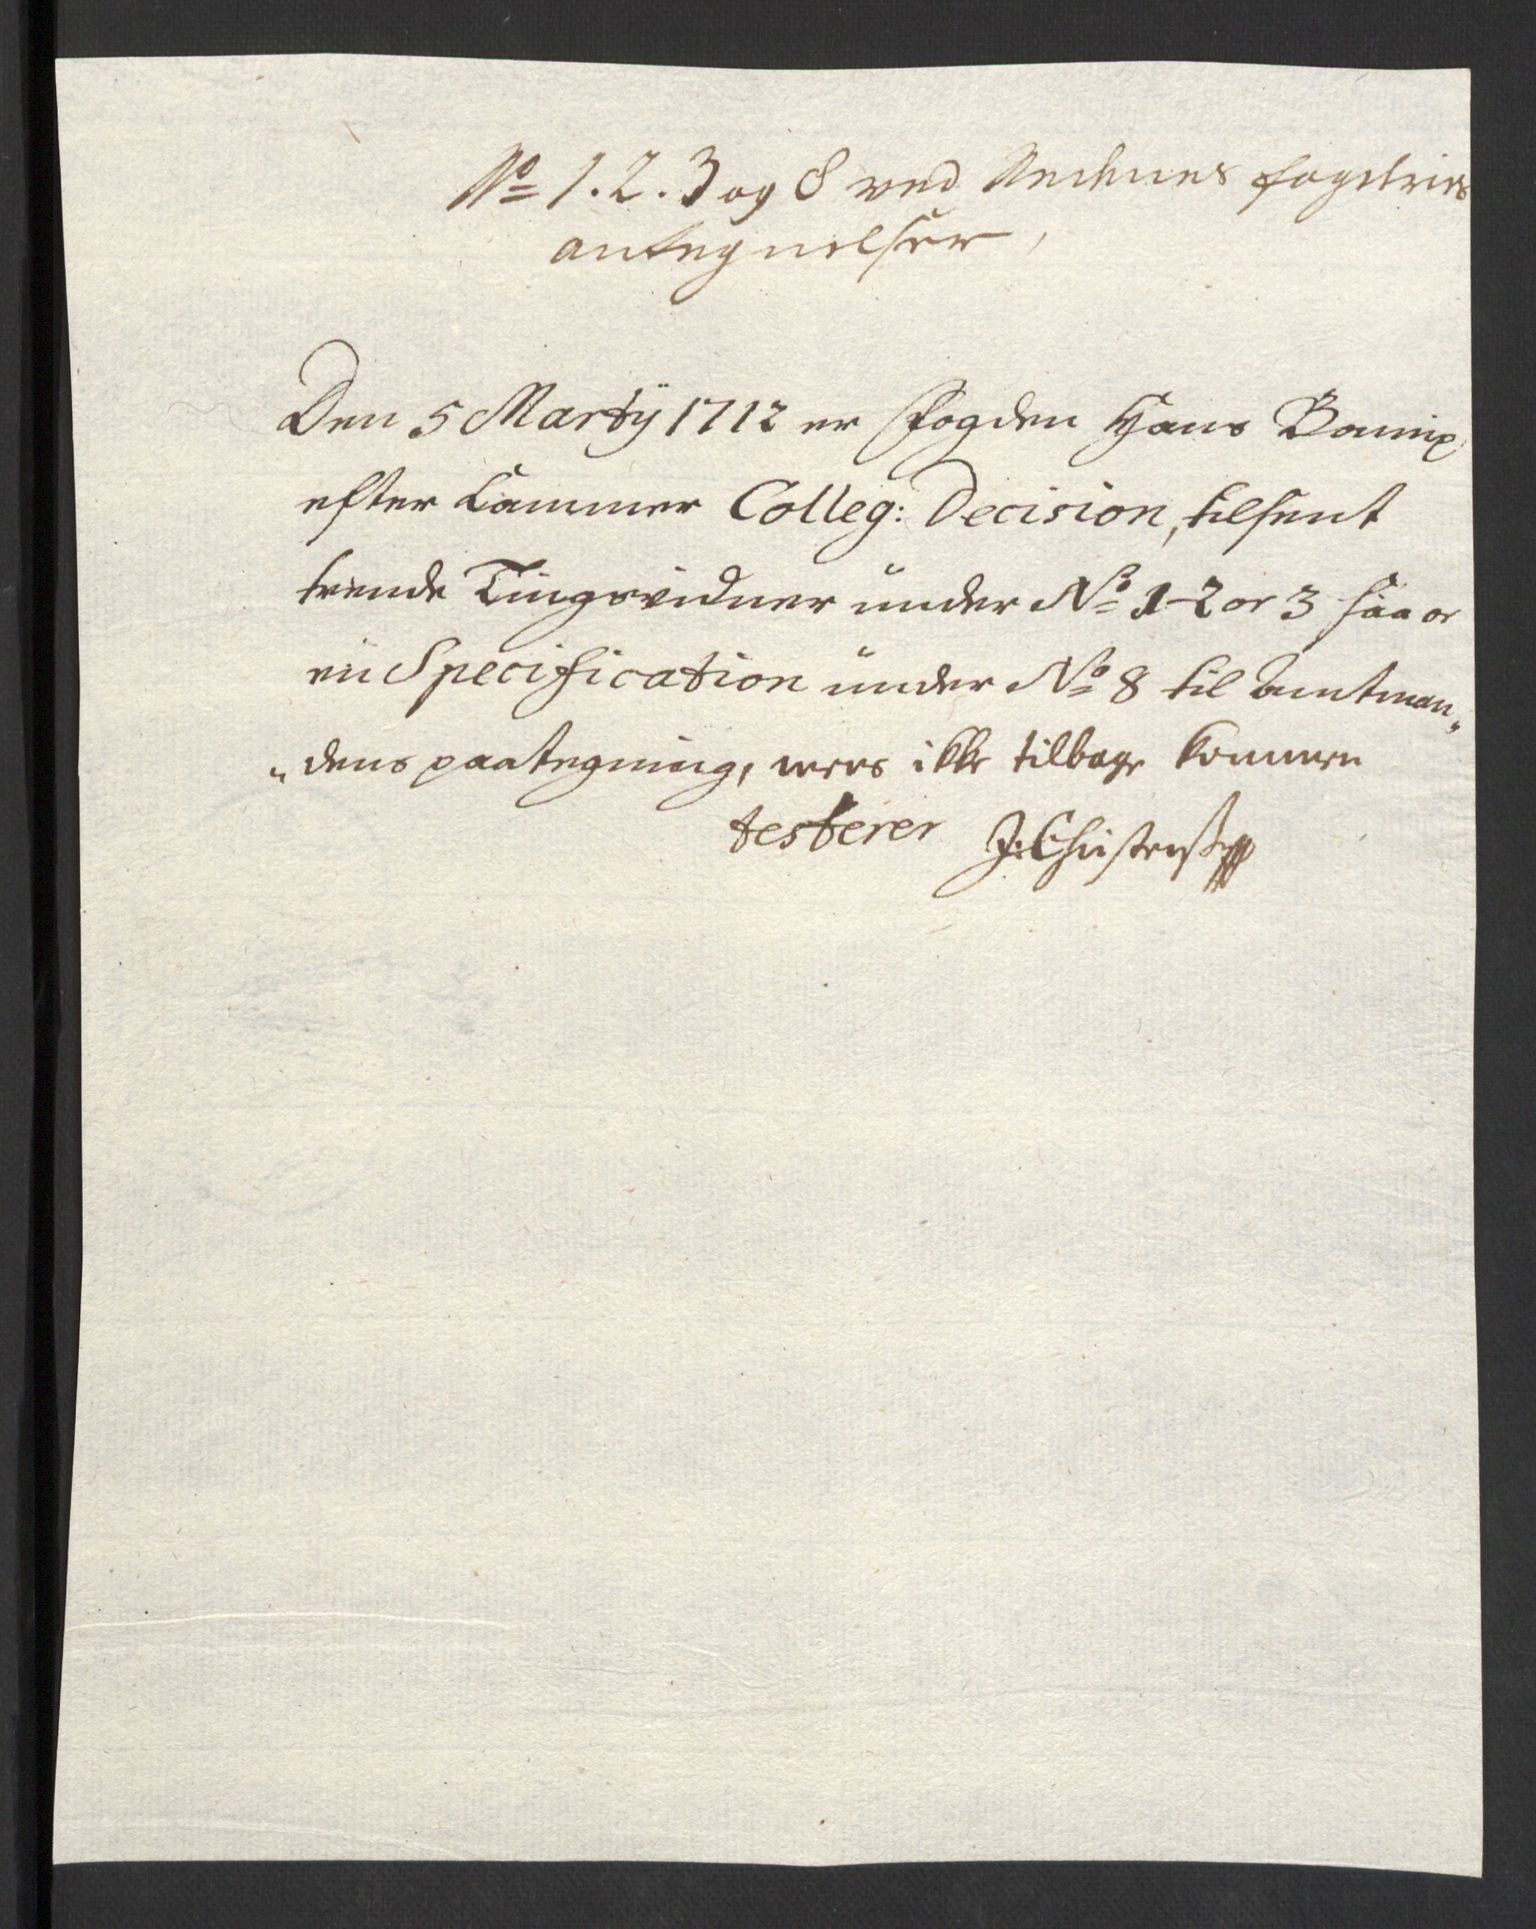 No 1. 2. 3 og 8 ved Nednes fogderies
antegnelser,
Den 5 Martÿ 1712 er Fogden Hans
efter Cammer Colleg: Decision, tilsent
trende Tingsvidner under No 1-2 or 3 saa or
en Specification under No 8 til Amtman„
„dens paategning, som ikke tilbage kommen
testerer J: Christens